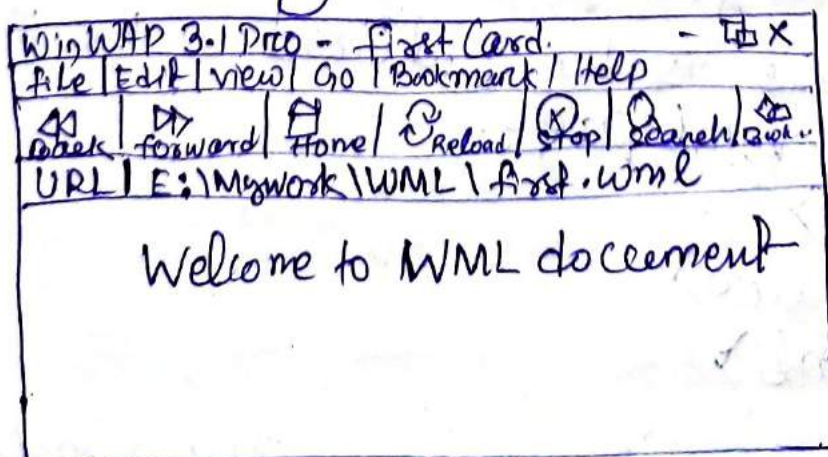 WinWAP 3.1 Pro - First Card. - X
File | Edit | view | Go | Bookmark | Help
Back | forward | Home | Reload | Stop | Search | Book..
URL | E:\Mywork\WML\first.wml
Welcome to WML document